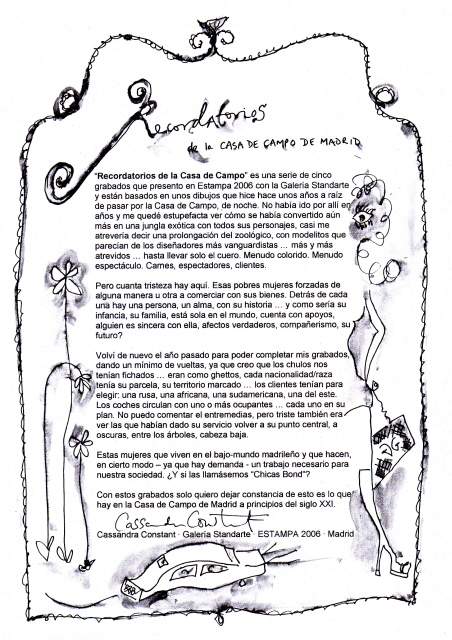 Recordatorios
de la CASA DE CAMPO DE MADRID
"Recordatorios de la Casa de Campo" es una serie de cinco
grabados que presento en Estampa 2006 con la Galería Standarte
y están basados en unos dibujos que hice hace unos años a raíz
de pasar por la Casa de Campo, de noche. No había ido por allí en
años y me quedé estupefacta ver cómo se había convertido aún
más en una jungla exótica con todos sus personajes, casi me
atrevería decir una prolongación del zoológico, con modelitos que
parecían de los diseñadores más vanguardistas ... más y más
atrevidos ... hasta llevar solo el cuero. Menudo colorido. Menudo
espectáculo. Carnes, espectadores, clientes.
Pero cuanta tristeza hay aquí. Esas pobres mujeres forzadas de
alguna manera u otra a comerciar con sus bienes. Detrás de cada
una hay una persona, un alma, con su historia ... y como sería su
infancia, su familia, está sola en el mundo, cuenta con apoyos,
alguien es sincera con ella, afectos verdaderos, compañerismo, su
futuro?
Volví de nuevo el año pasado para poder completar mis grabados,
dando un mínimo de vueltas, ya que creo que los chulos nos
tenían fichados ... eran como ghettos, cada nacionalidad/raza
tenía su parcela, su territorio marcado ... los clientes tenían para
elegir: una rusa, una africana, una sudamericana, una del este.
Los coches circulan con uno o más ocupantes ... cada uno en su
plan. No puedo comentar el entremedias, pero triste también era
ver las que habían dado su servicio volver a su punto central, a
oscuras, entre los árboles, cabeza baja.
Estas mujeres que viven en el bajo-mundo madrileño y que hacen,
en cierto modo – ya que hay demanda - un trabajo necesario para
nuestra sociedad. ¿Y si las llamásemos "Chicas Bond"?
Con estos grabados solo quiero dejar constancia de esto es lo que
hay en la Casa de Campo de Madrid a principios del siglo XXI.
Cassandra Constant
Cassandra Constant · Galería Standarte · ESTAMPA 2006 · Madrid